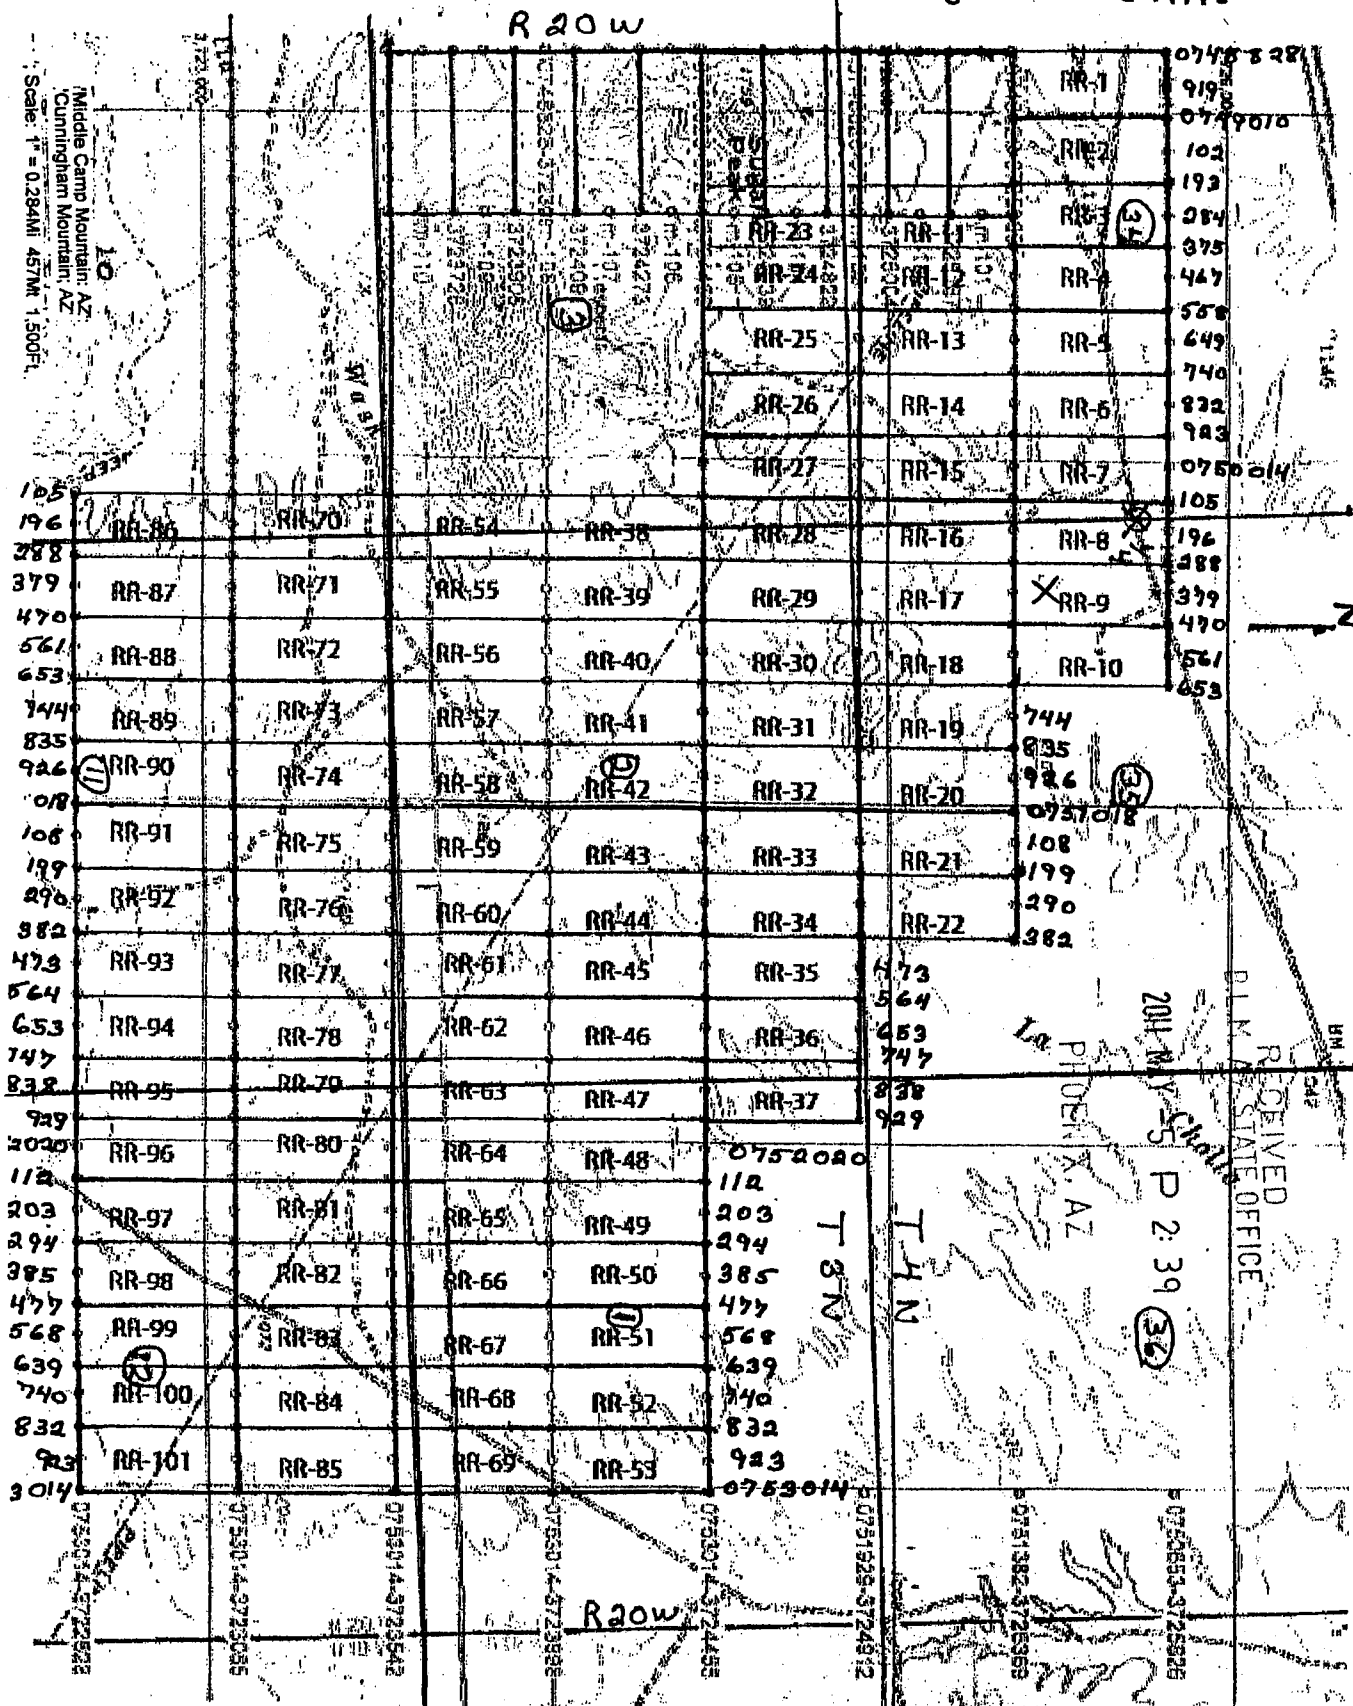 R 20 W
Middle Camp Mountain, AZ
Cunningham Mountain, AZ
Scale: 1" = 0.284Mi 457Mt 1,500Ft
10
Wash
3
34
35
36
11
12
1
RR-1
RR-2
RR-3
RR-4
RR-5
RR-6
RR-7
RR-8
X RR-9
RR-10
RR-11
RR-12
RR-13
RR-14
RR-15
RR-16
RR-17
RR-18
RR-19
RR-20
RR-21
RR-22
RR-23
RR-24
RR-25
RR-26
RR-27
RR-28
RR-29
RR-30
RR-31
RR-32
RR-33
RR-34
RR-35
RR-36
RR-37
RR-38
RR-39
RR-40
RR-41
RR-42
RR-43
RR-44
RR-45
RR-46
RR-47
RR-48
RR-49
RR-50
RR-51
RR-52
RR-53
RR-54
RR-55
RR-56
RR-57
RR-58
RR-59
RR-60
RR-61
RR-62
RR-63
RR-64
RR-65
RR-66
RR-67
RR-68
RR-69
RR-70
RR-71
RR-72
RR-73
RR-74
RR-75
RR-76
RR-77
RR-78
RR-79
RR-80
RR-81
RR-82
RR-83
RR-84
RR-85
RR-86
RR-87
RR-88
RR-89
RR-90
RR-91
RR-92
RR-93
RR-94
RR-95
RR-96
RR-97
RR-98
RR-99
RR-100
RR-101
919
0749010
102
193
284
375
467
558
649
740
832
923
0750014
105
196
288
379
470
561
653
744
835
926
108
199
290
382
473
564
653
747
838
929
0752020
112
203
294
385
477
568
639
740
832
923
0753014
105
196
288
379
470
561
653
744
835
926
018
108
199
290
382
473
564
653
747
838
929
2020
112
203
294
385
477
568
639
740
832
923
3014
N
T 3 N
T 4 N
RECEIVED
BLM AZ STATE OFFICE
2011 MAY -5 P 2:39
PHOENIX, AZ
La
Cholla
BM
R 20 W
0753014-3723542
0753014-3723998
0753014-3724455
0751929-3724912
0751382-3725369
0750653-3725826